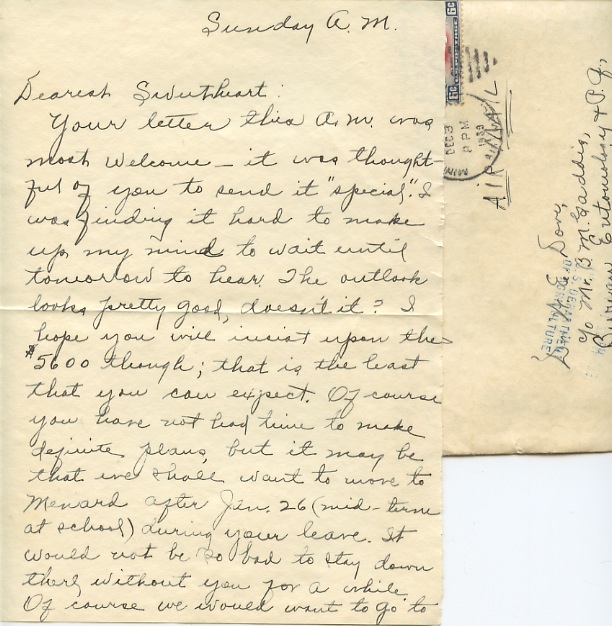 Sunday A.M.
Dearest Sweetheart:
Your letter this A.M. was
most welcome — it was thought-
ful of you to send it "special". I
was finding it hard to make
up my mind to wait until
tomorrow to hear. The outlook
looks pretty good, doesn't it? I
hope you will insist upon the
$5600 though; that is the least
that you can expect. Of course
you have not had time to make
definite plans, but it may be
that we shall want to move to
Menard after Jan. 26 (mid-term
at school) during your leave. It
would not be so bad to stay down
there without you for a while.
Of course we would want to go to
6c 6c
DEC 3
PM
1939
AIR MAIL
Dove,
c/o Mr. B. M. Gaddis,
Bureau Entomology & P.Q.
U.S. DEPARTMENT
OF AGRICULTURE